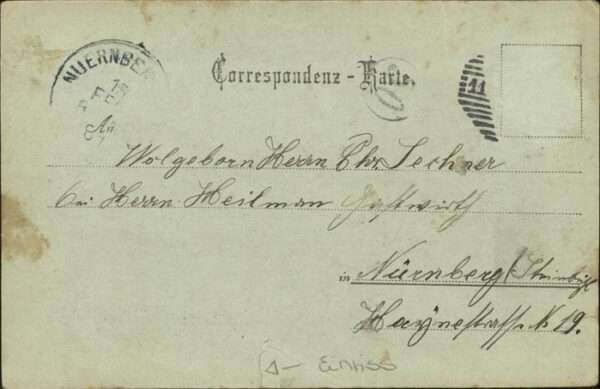 NUERNBE
Correspondenz - Karte.
11
An
Wolgeborn Herrn Chr. Lechner
bei Herrn Heilman Gastwirth
in Nürnberg (Steinbühl
Haÿnestrasse No 19.